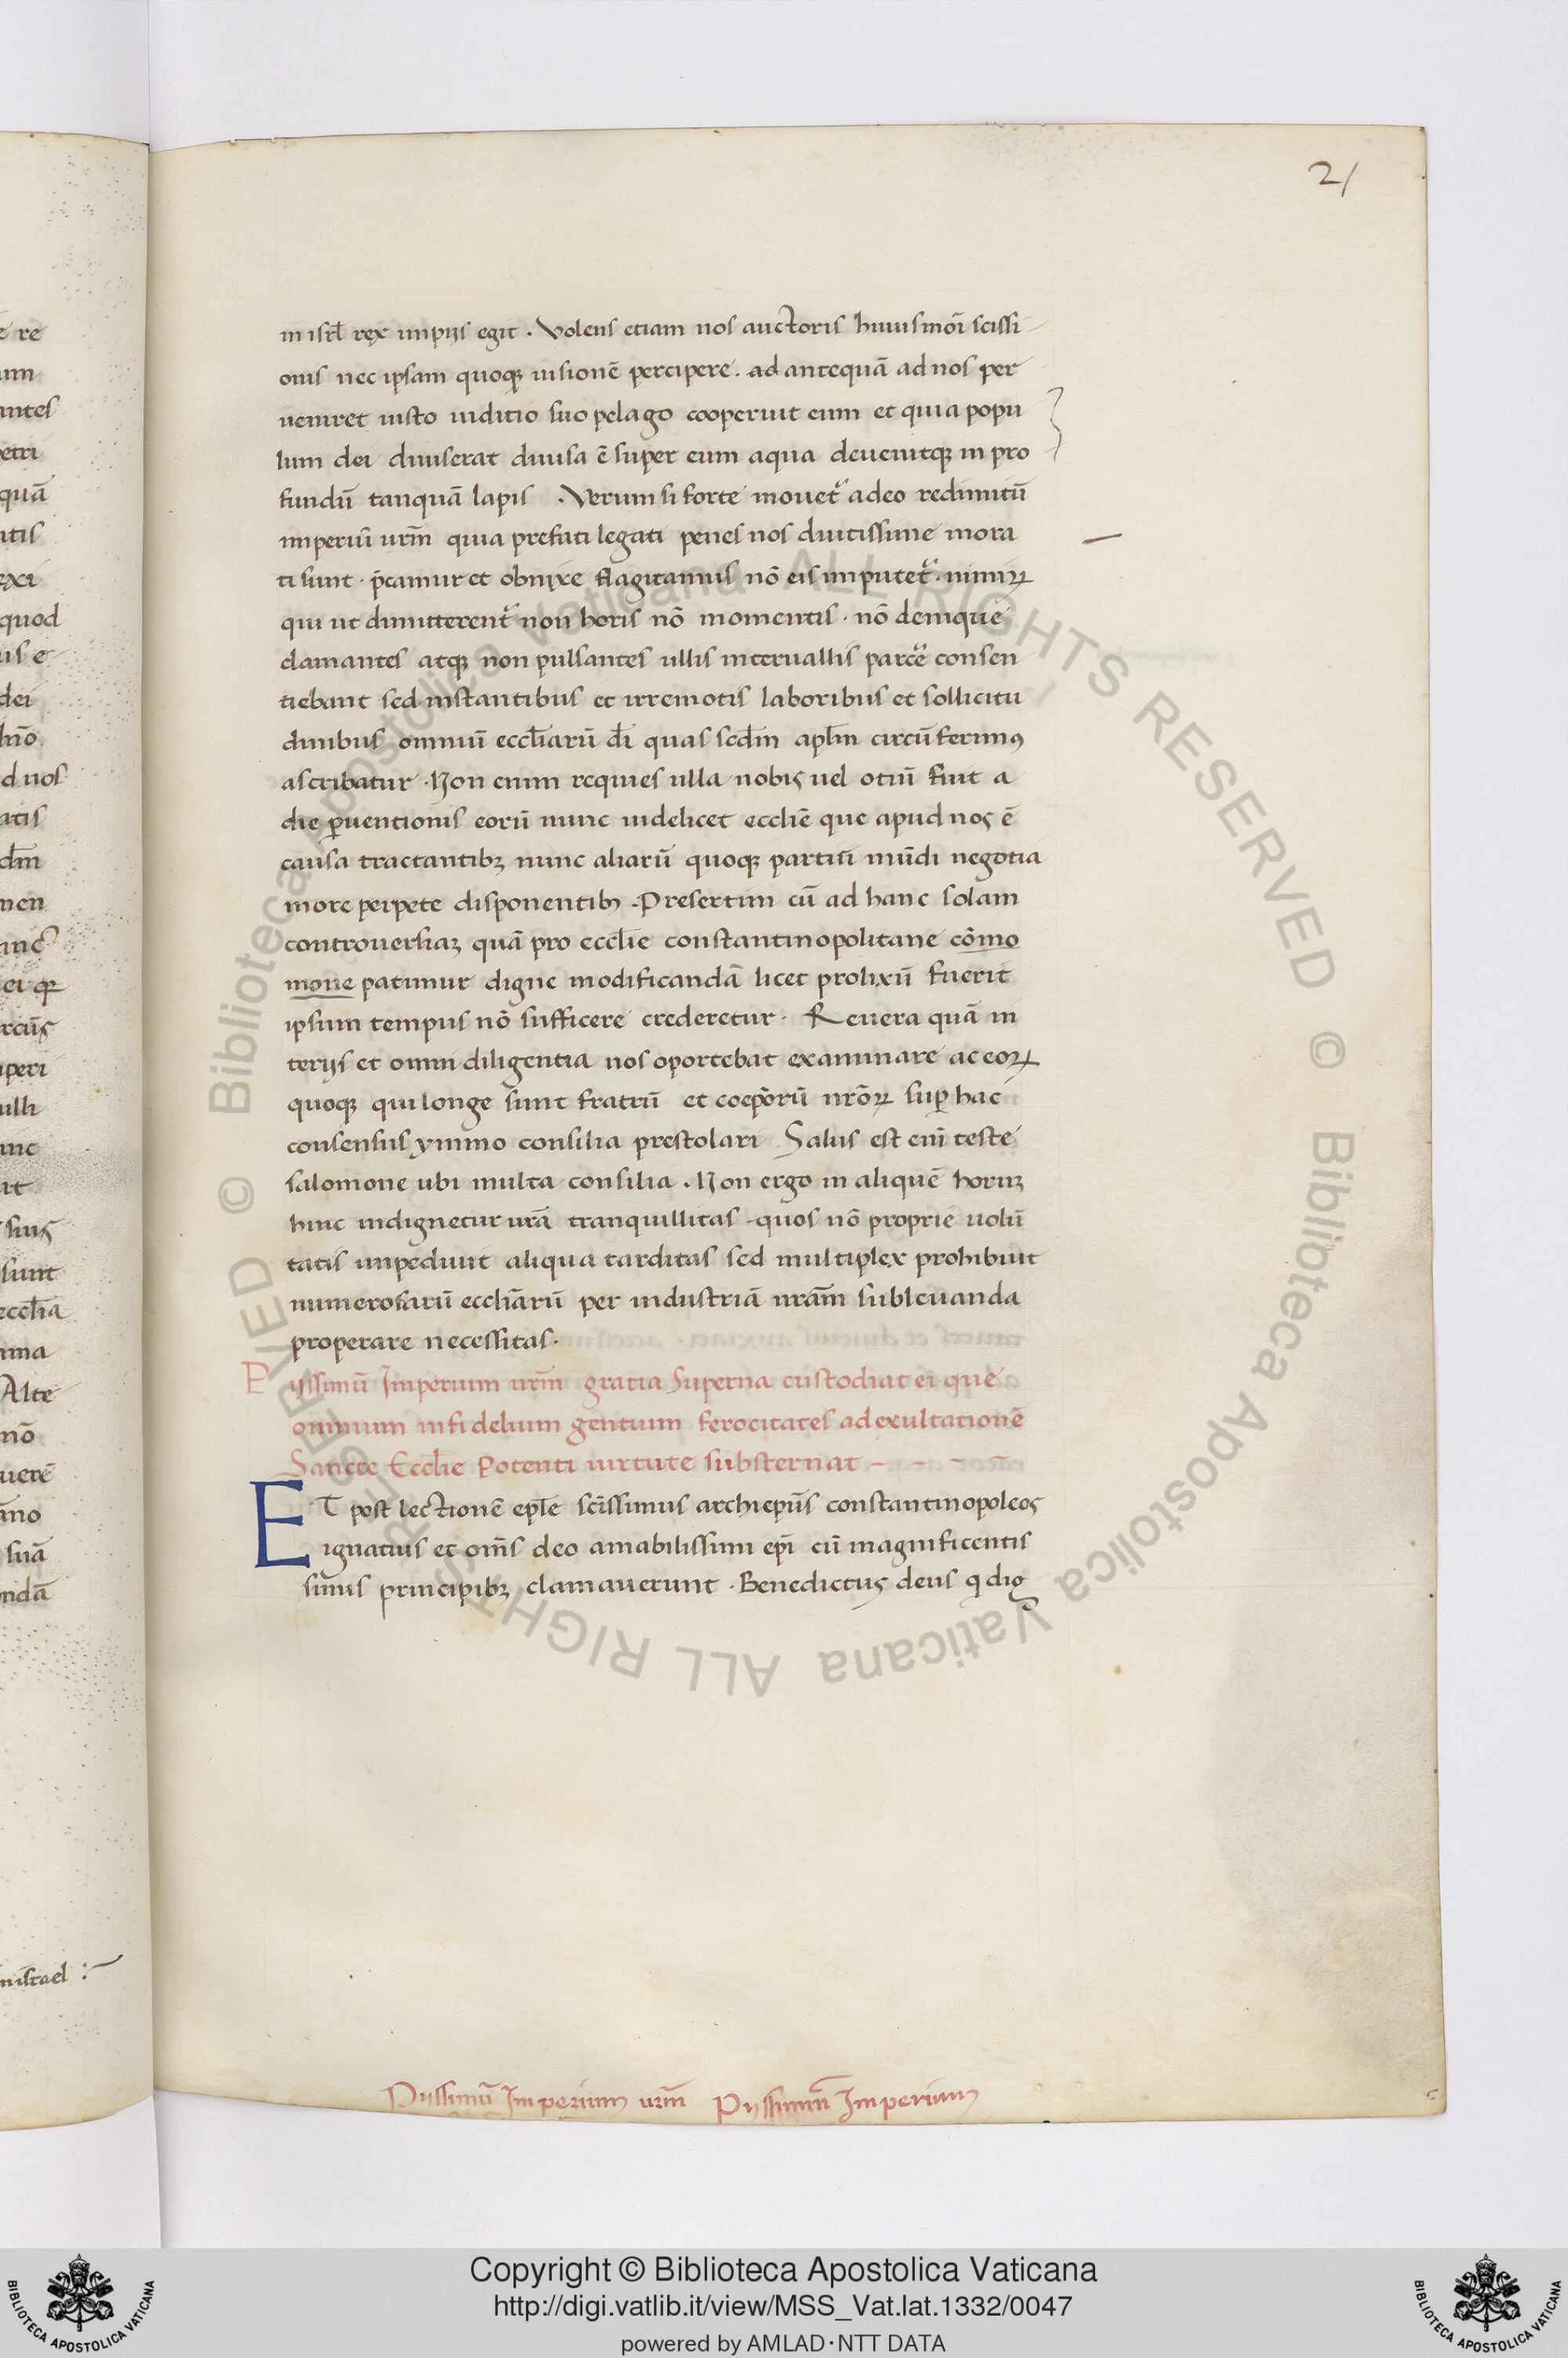 21
in isrl̄ rex impijs egit . Volens etiam nos auctoris huiusmōi scissi
onis nec ipsam quoqꝫ uisionē percipere . ad antequā ad nos per
ueniret iusto iuditio suo pelago cooperuit eum et quia popu
lum dei diuiserat diuisa ē super eum aqua deuenitqꝫ in pro
fundū tanquā lapis . Verum si forte mouet̄ adeo redimitū
imperiū urm̄ quia prefati legati penes nos diutissime mora
ti sunt . p̄camur et obnixe flagitamus nō eis imputet̄ . nimiꝝ
qui ut dimitterent̄ non horis nō momentis . nō denique
clamantes atqꝫ non pulsantes ullis interuallis parcē consen
tiebant sed instantibus et irremotis laboribus et sollicitu
dinibus omniū eccl̄iarū dī quas scdm̄ apl̄m circūferimꝰ
ascribatur . Non enim requies ulla nobis uel otiū fuit a
die ꝑuentionis eorū nunc uidelicet ecclīe que apud nos ē
causa tractantibꝫ nunc aliarū quoqꝫ partiū mūdi negotia
more perpete disponentibꝫ . Presertim cū ad hanc solam
controuersiaꝫ quā pro eccl̄ie constantinopolitane cōmo
mone patimur digne modificandā licet prolixū fuerit
ipsum tempus nō sufficere crederetur . Reuera quā in
terijs et omni diligentia nos oportebat examinare ac eoꝝ
quoqꝫ qui longe sunt fratrū et coep̄orū nr̄oꝝ suꝑ hac
consensus ymmo consilia prestolari Salus est enī teste
salomone ubi multa consilia . Non ergo in aliquē horuꝫ
hinc indignetur urā tranquillitas . quos nō proprie uolū
tatis impediuit aliqua tarditas sed multiplex prohibuit
numerosarū ecclīarū per industriā nrām subleuanda
properare necessitas .
Pijssimū Imperium urm̄ gratia Superna custodiat ei que
omnium infidelium gentium ferocitates ad exultationē
Sancte Eccl̄ie Potenti uirtute substernat - - - -
ET post lectionē epl̄e scīssimus archiep̄us constantinopoleos
ignatius et om̄s deo amabilissimi ep̄i cū magnificentis
simis principibꝫ clamauerunt . Benedictus deus q̇ dig
Pijssimū Imperium urm̄ Pijssimūm Imperium
e re
um
antes
etri
quā
atis
exi
quod
us e
dei
hn̄o
d uos
atis
dm̄
men
ei qꝫ
peri
ulli
unc
it
suis
sunt
eccl̄ia
ma
Alte
nō
uerē
āno
suā
ndā
Copyright © Biblioteca Apostolica Vaticana
http://digi.vatlib.it/view/MSS_Vat.lat.1332/0047
powered by AMLAD·NTT DATA
BIBLIOTECA APOSTOLICA VATICANA
BIBLIOTECA APOSTOLICA VATICANA
© Biblioteca Apostolica Vaticana ALL RIGHTS RESERVED © Biblioteca Apostolica Vaticana ALL RIGHTS RESERVED